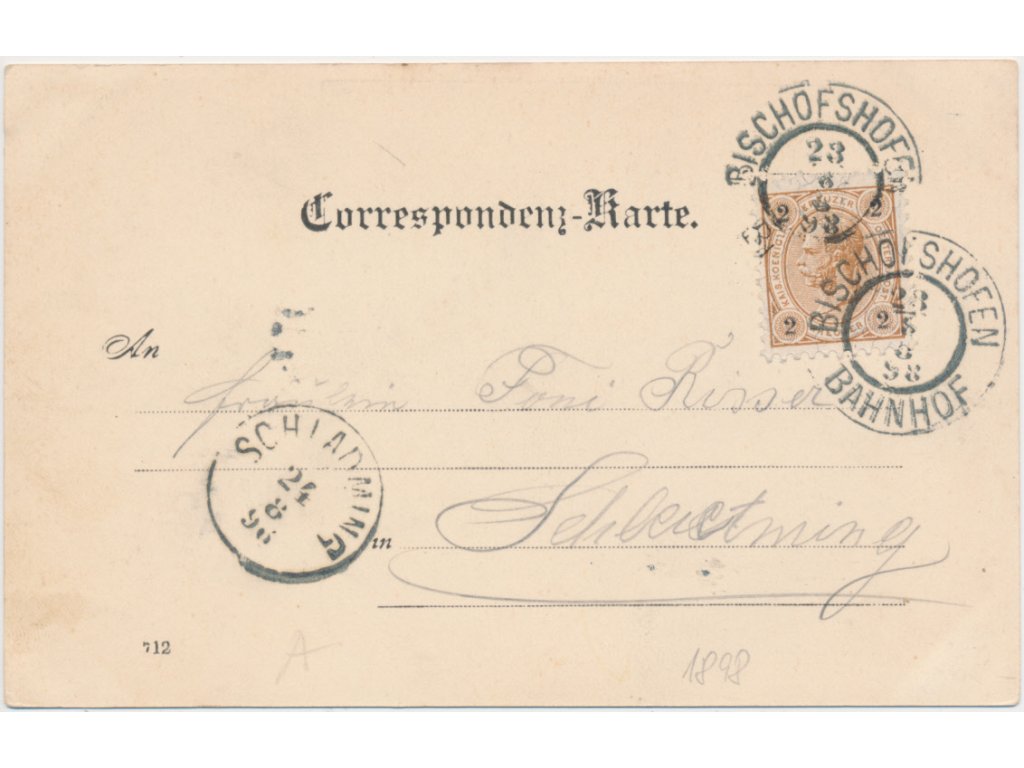 Correspondenz-Karte.
BISCHOFSHOFEN
23
8
98
2 KREUZER 2
KAIS. KOENIGL.
2 2
BISCHOFSHOFEN
23
8
98
BAHNHOF
An
Fräulein Toni Risser
SCHLADMING
24
8
98
in
Schladming
712
A
1898